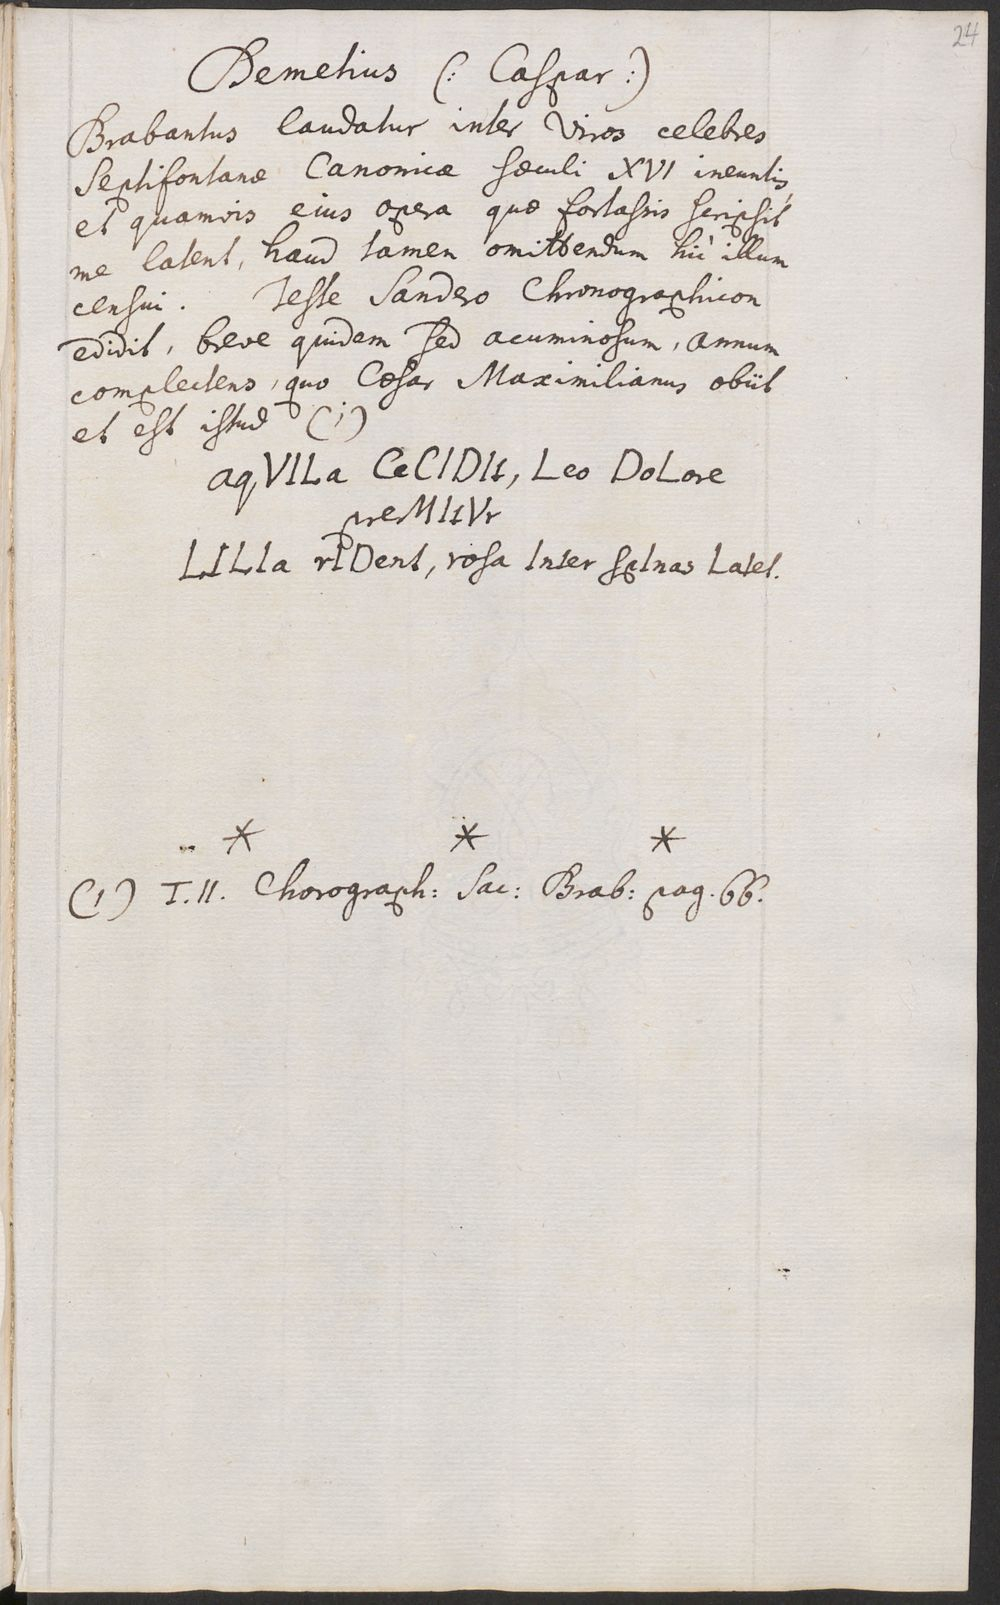 24
Bemelius (: Caspar :)
Brabantus laudatur inter Viros celebres
Septifontanæ Canonicæ sæculi XVI ineuntis,
et quamvis eius opera quæ fortassis scripsit
me latent, haud tamen omittendum hic illum
censui. Teste Sandero Chronographicon
edidit, breve quidem sed acuminosum, annum
complectens, quo Cæsar Maximilianus obiit
et est istud (1)
aqVILa CeCIDIt, Leo DoLore
preMItVr
LILIa rIDent, rosa Inter spInas Latet.
* * *
(1) T. II. Chorograph: Sac: Brab: pag. 66.